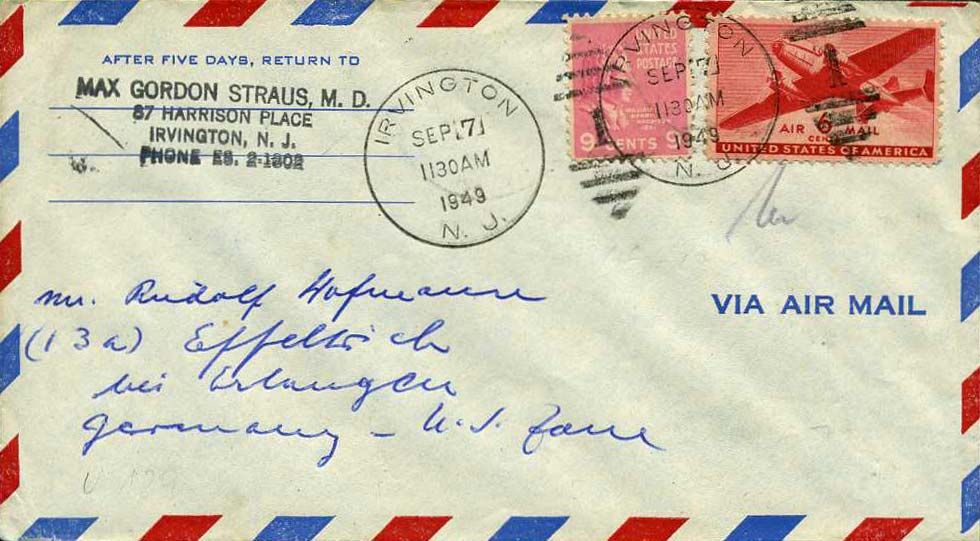 AFTER FIVE DAYS, RETURN TO
MAX GORDON STRAUS, M. D.
87 HARRISON PLACE
IRVINGTON, N. J.
PHONE ES. 2-1302
IRVINGTON
SEP 7
1130 AM
1949
N. J.
UNITED
STATES
POSTAGE
9 CENTS 9
IRVINGTON
SEP 7
1130 AM
1949
N. J.
1
1
AIR 6 MAIL
CENTS
UNITED STATES OF AMERICA
VIA AIR MAIL
Mr. Rudolf Hofmann
(13a) Effeltrich
bei Erlangen
Germany - U.S. Zone